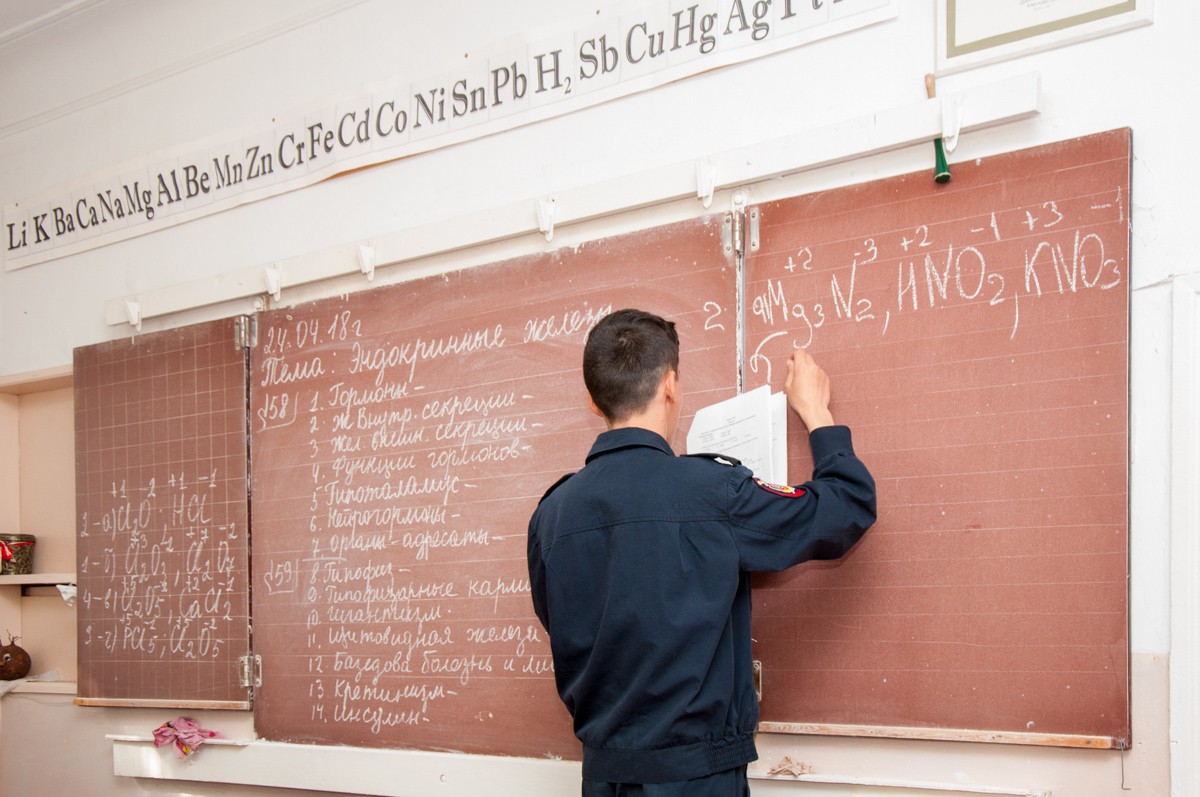 Li K Ba Ca Na Mg Al Be Mn Zn Cr Fe Cd Co Ni Sn Pb H₂ Sb Cu Hg Ag Pt
24.04.18г
Тема: Эндокринные железы
§58 1. Гормоны-
2. Ж. Внутр. секреции-
3. Жел. внешн. секреции-
4. Функции гормонов-
5. Гипоталамус-
6. Нейрогормоны-
7. органы-адресаты-
§59 8. Гипофиз-
9. Гипофизарные карли
10. Гигантизм-
11. Щитовидная железа
12. Базедова болезнь и
13. Кретинизм-
14. Инсулин-
+1 -2 +1 -1
2-а) Cl₂O HCl
2-б)
4-в) CaCl₂
3-г) PCl₅, Cl₂O₅
+2 -3 +2 -1 +3 -1
2. Mg₃N₂, HNO₂, KNO₃